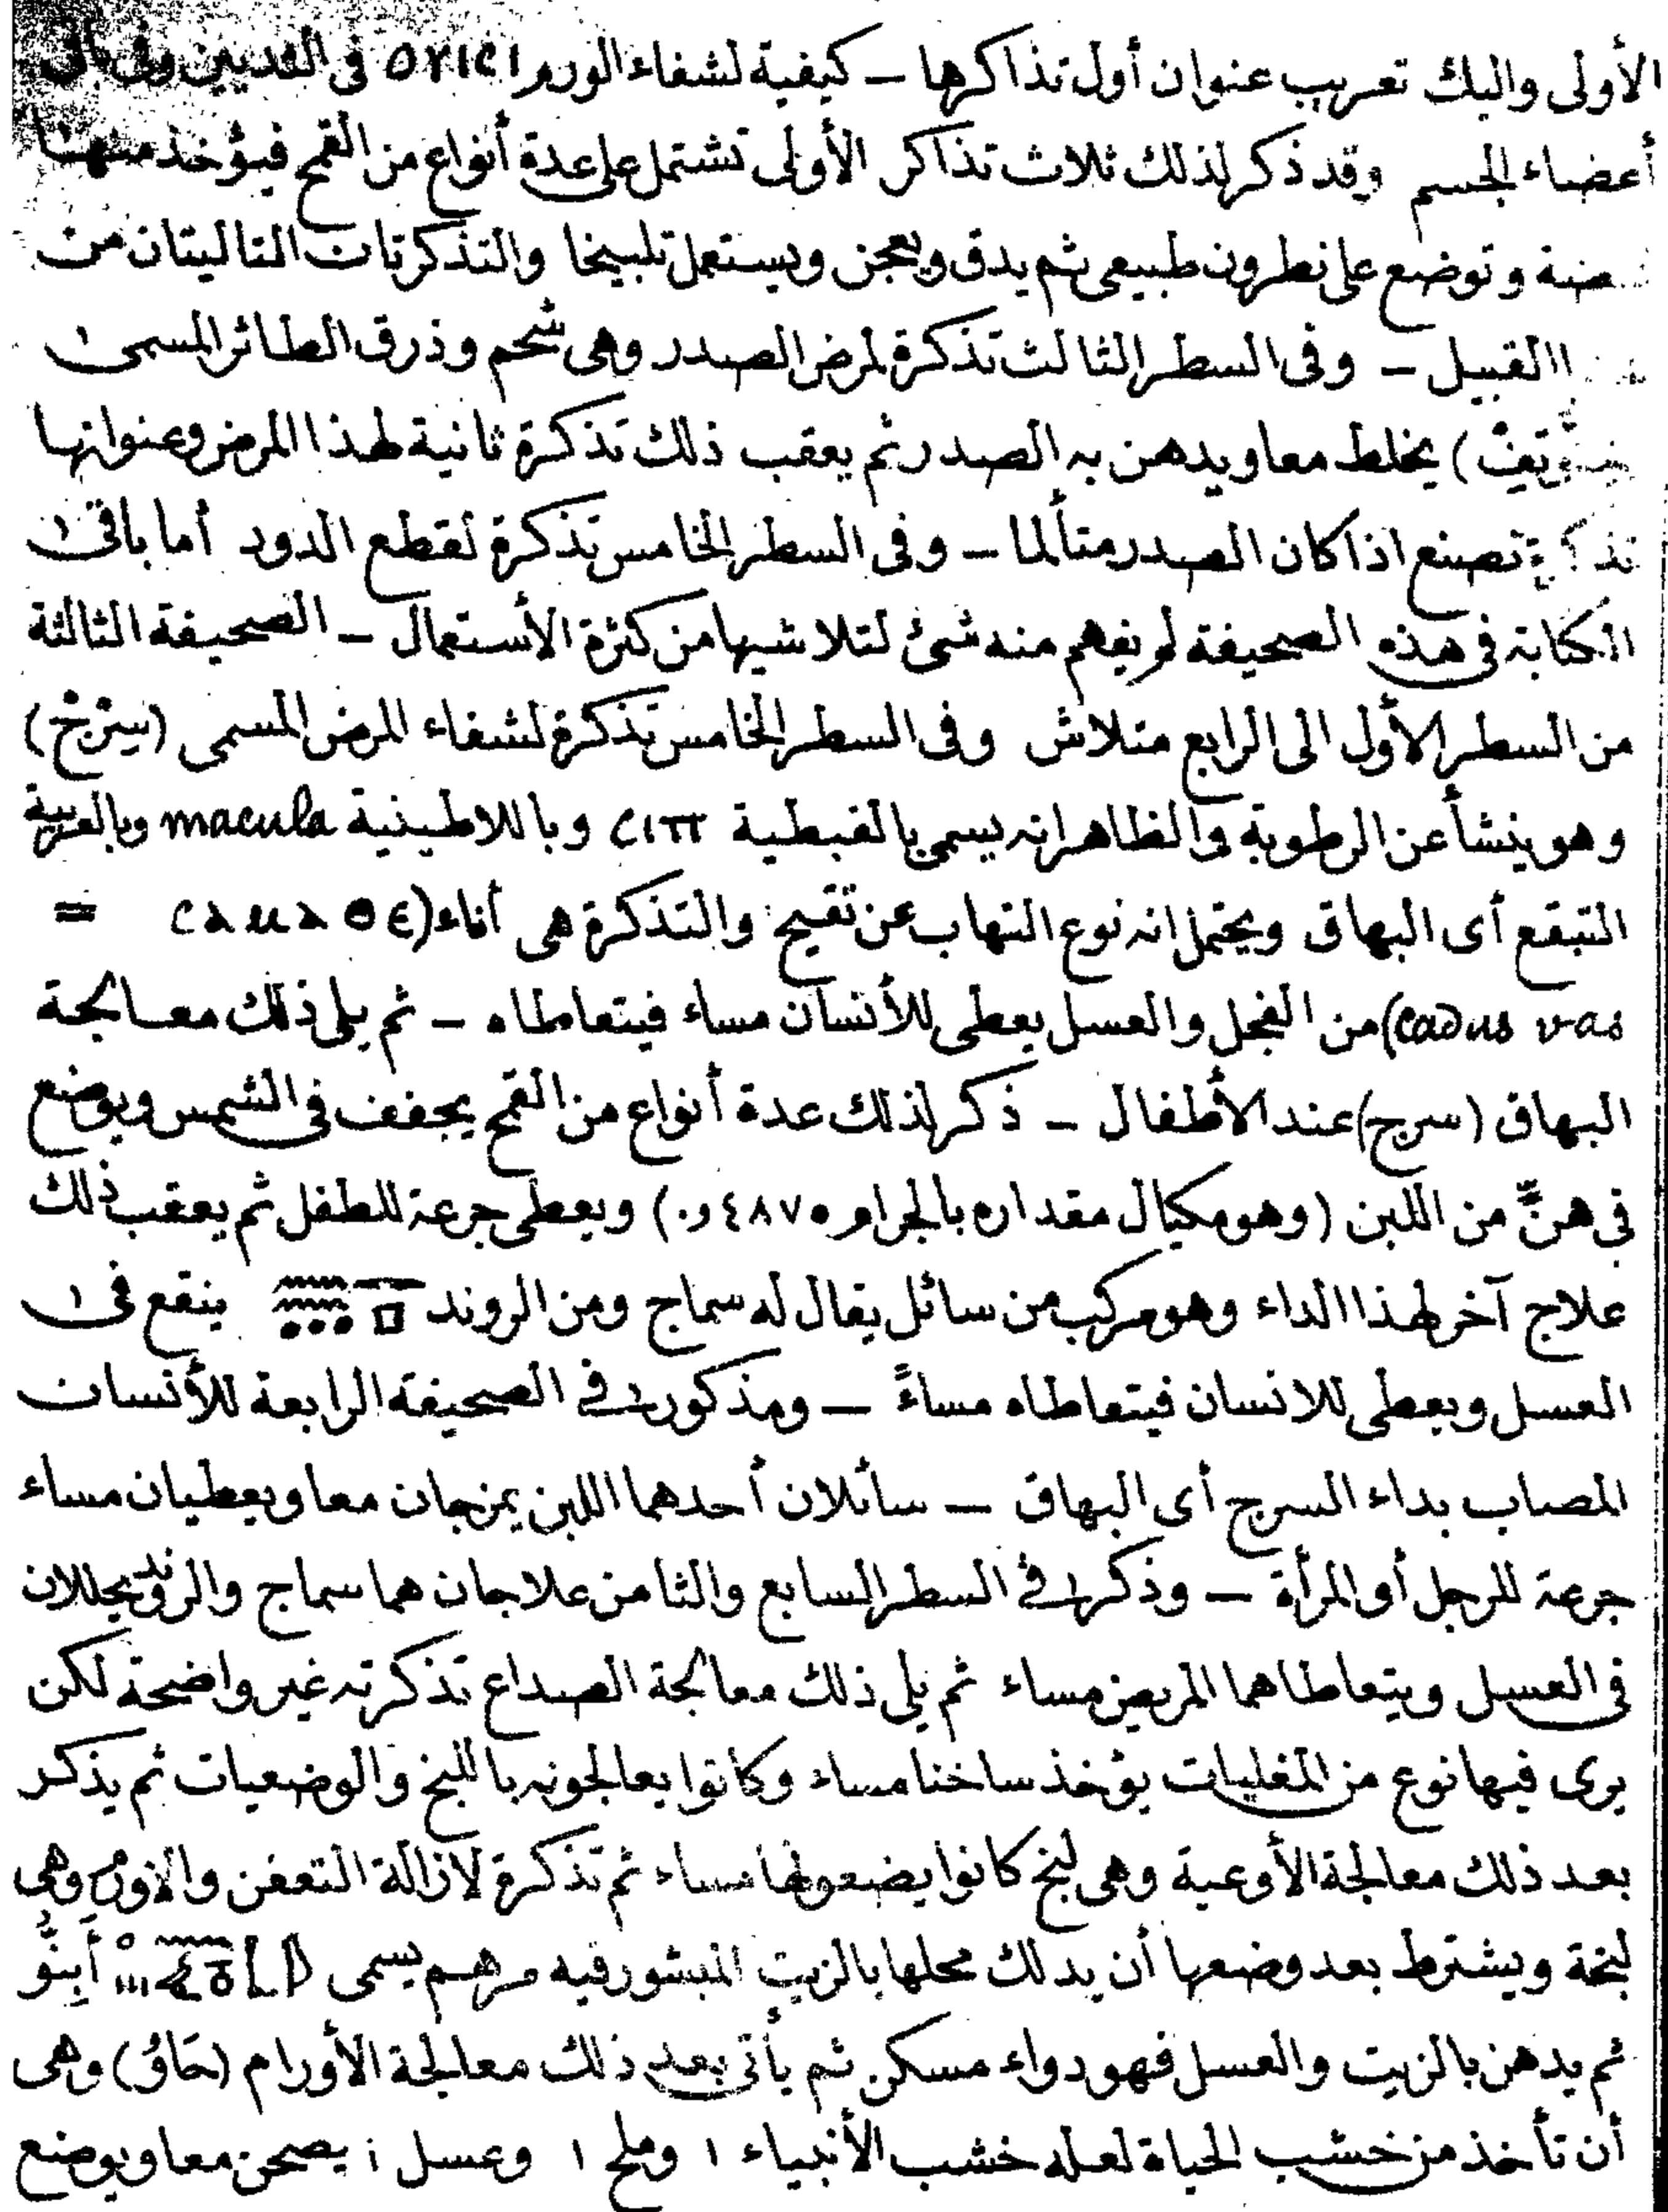 الأولى واليك تعريب عنوان أول تذاكرها ــ كيفية لشفاء الورم ⲟⲩⲓⲥⲓ في القدمين وفى باقى
أعضاء الجسم وقد ذكر لذلك ثلاث تذاكر الأولى تشتمل على عدة أنواع من القمح فيؤخذ منها
وتوضع على نطرون طبيعى ثم يدق ويعجن ويستعمل تلبيخا والتذكرتان التاليتان من
القبيل ــ وفى السطر الثالث تذكرة لمرض الصدر وهى شحم وذرق الطائر المسمى
يخلط معا ويدهن به الصدر ثم يعقب ذلك تذكرة ثانية لهذا المرض وعنوانها
تذكرة تصنع اذا كان الصدر متألما ــ وفى السطر الخامس تذكرة لقطع الدود أما باقى
الكتابة فى هذه الصحيفة لم يفهم منه شئ لتلاشيها من كثرة الأستعمال ــ الصحيفة الثالثة
من السطر الأول الى الرابع متلاش وفى السطر الخامس تذكرة لشفاء المرض المسمى (سِرْجْ)
وهو ينشأ عن الرطوبة والظاهر انه يسمى بالقبطية ⲥⲓⲧⲧ وباللاطينية macula وبالعربية
التبقع أى البهاق ويحتمل انه نوع التهاب عن تقيح والتذكرة هى أناء (ⲥⲁⲙⲁⲑⲉ =
cadus vas) من الفجل والعسل يعطى للأنسان مساء فيتعاطاه ــ ثم يلى ذلك معالجة
البهاق (سرج) عند الأطفال ــ ذكر لذلك عدة أنواع من القمح يجفف فى الشمس ويوضع
فى هنّ من اللبن (وهو مكيال مقداره بالجرام ٤٨٧٥و٠) ويعطى جرعة للطفل ثم يعقب ذلك
علاج آخر لهذا الداء وهو مركب من سائل يقال له سماج ومن الروند ينقع فى
العسل ويعطى للانسان فيتعاطاه مساءً ــ ومذكور فى الصحيفة الرابعة للأنسان
المصاب بداء السرج أى البهاق ــ سائلان أحدهما اللبن يمزجان معا ويعطيان مساء
جرعة للرجل أو المرأة ــ وذكر فى السطر السابع والثامن علاجان هما سماج والروند يحللان
فى العسل ويتعاطاهما المريض مساء ثم يلى ذلك معالجة الصداع تذكرته غير واضحة لكن
يرى فيها نوع من المغليات يؤخذ ساخنا مساء وكانوا يعالجونه باللبخ والوضعيات ثم يذكر
بعد ذلك معالجة الأوعية وهى لبخ كانوا يضعونها مساء ثم تذكرة لازالة التعفن والاورام وهى
لبخة ويشترط بعد وضعها أن يدلك محلها بالزيت المبشور فيه مرهم يسمى أَبِنُّو
ثم يدهن بالزيت والعسل فهو دواء مسكن ثم يأتى بعد ذلك معالجة الأورام (حَاوُ) وهى
أن تأخذ من خشب الحياة لعله خشب الأنبياء ١ وملح ١ وعسل ١ يصحن معا ويوضع